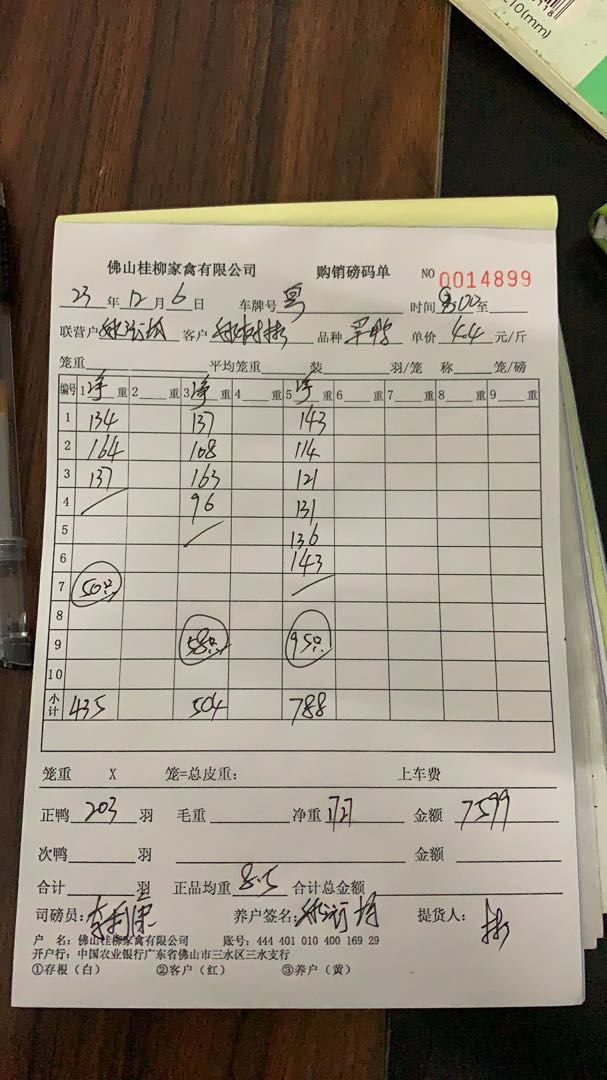 210(mm)
佛山桂柳家禽有限公司 购销磅码单 NO 0014899
23 年 12 月 6 日 车牌号 粤 时间 8:00 至
联营户 客户 品种 单价 4.4 元/斤
笼重 平均笼重 装 羽/笼 称 笼/磅
编号 1 净 重 2 重 3 净 重 4 重 5 净 重 6 重 7 重 8 重 9 重
1 134 137 143
2 164 108 114
3 137 163 121
4 96 131
5 136
6 143
7 50只
8
9 58只 95只
10
小计 435 504 788
笼重 X 笼=总皮重: 上车费
正鸭 203 羽 毛重 净重 1727 金额 7599
次鸭 羽 金额
合计 羽 正品均重 8.5 合计总金额
司磅员: 养户签名: 提货人:
户 名: 佛山桂柳家禽有限公司 账号: 444 401 010 400 169 29
开户行: 中国农业银行广东省佛山市三水区三水支行
①存根(白) ②客户(红) ③养户(黄)